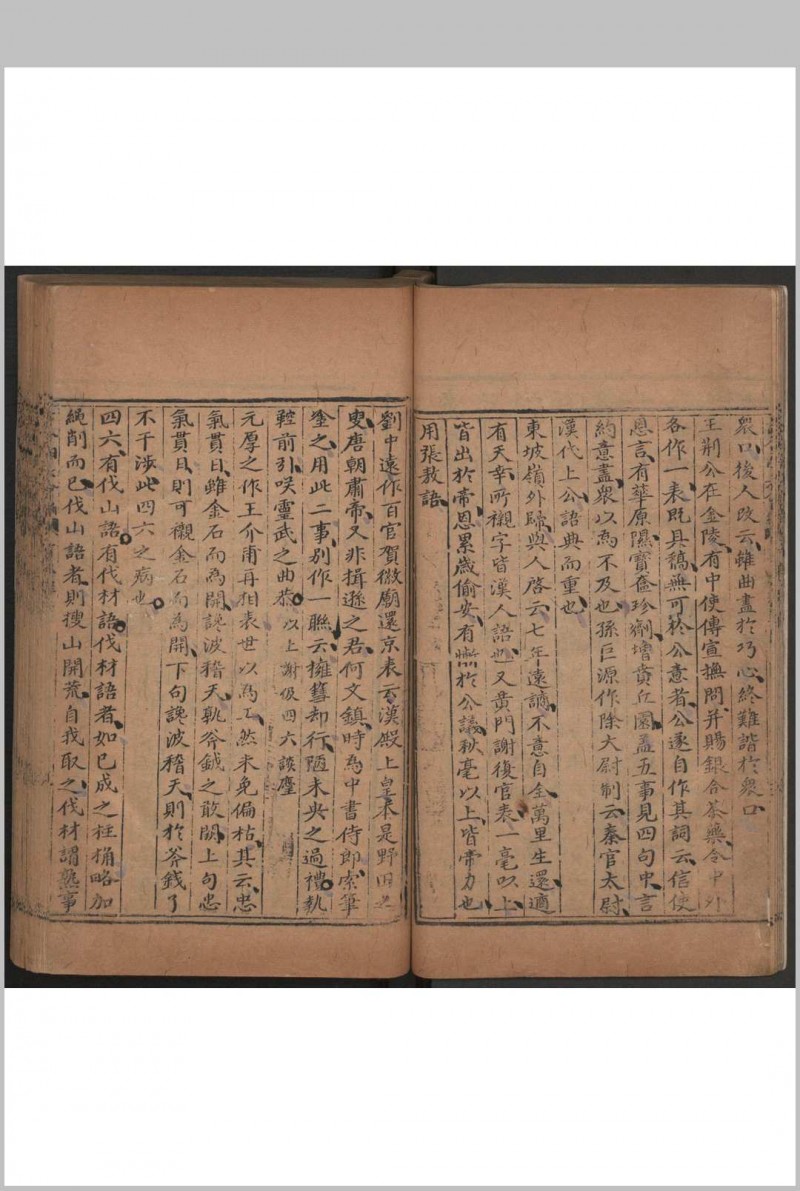 衆口後人改云雖曲盡於巧心終難諧於衆口
王荆公在金陵有中使傳宣撫問并賜銀合茶藥令中外
各作一表既具藁無可於公意者公遂自作其詞云信使
恩言有華原隰寶奩珍劑增賁丘園盖五事見四句中言
約意盡衆以為不及也孫巨源作除大尉制云秦官太尉
漢代上公語典而重也
東坡嶺外歸與人啓云七年遠謫不意自全萬里生還適
有天幸所襯字皆漢人語也又黄門謝復官表一毫以上
皆出於帝恩累歲偷安有慚於公議秋毫以上皆帝力也
用張敖語
劉中遠作百官賀徽廟還京表云漢殿上皇本是野田之
叟唐朝肅帝又非揖遜之君何文鎮時為中書侍郎索筆
塗之用此二事别作一聯云擁篲却行陋未央之過禮執
鞚前引咲靈武之曲恭以上謝伋四六談麈
元厚之作王介甫再相表世以為工然未免偏枯其云忠
氣貫日雖金石而為開讒波稽天孰斧鉞之敢闕上句忠
氣貫日則可襯金石而為開下句讒波稽天則於斧鉞了
不干涉此四六之病也
四六有伐山語有伐材語伐材語者如已成之柱桷略加
繩削而已伐山語者則搜山開荒自我取之伐材謂熟事